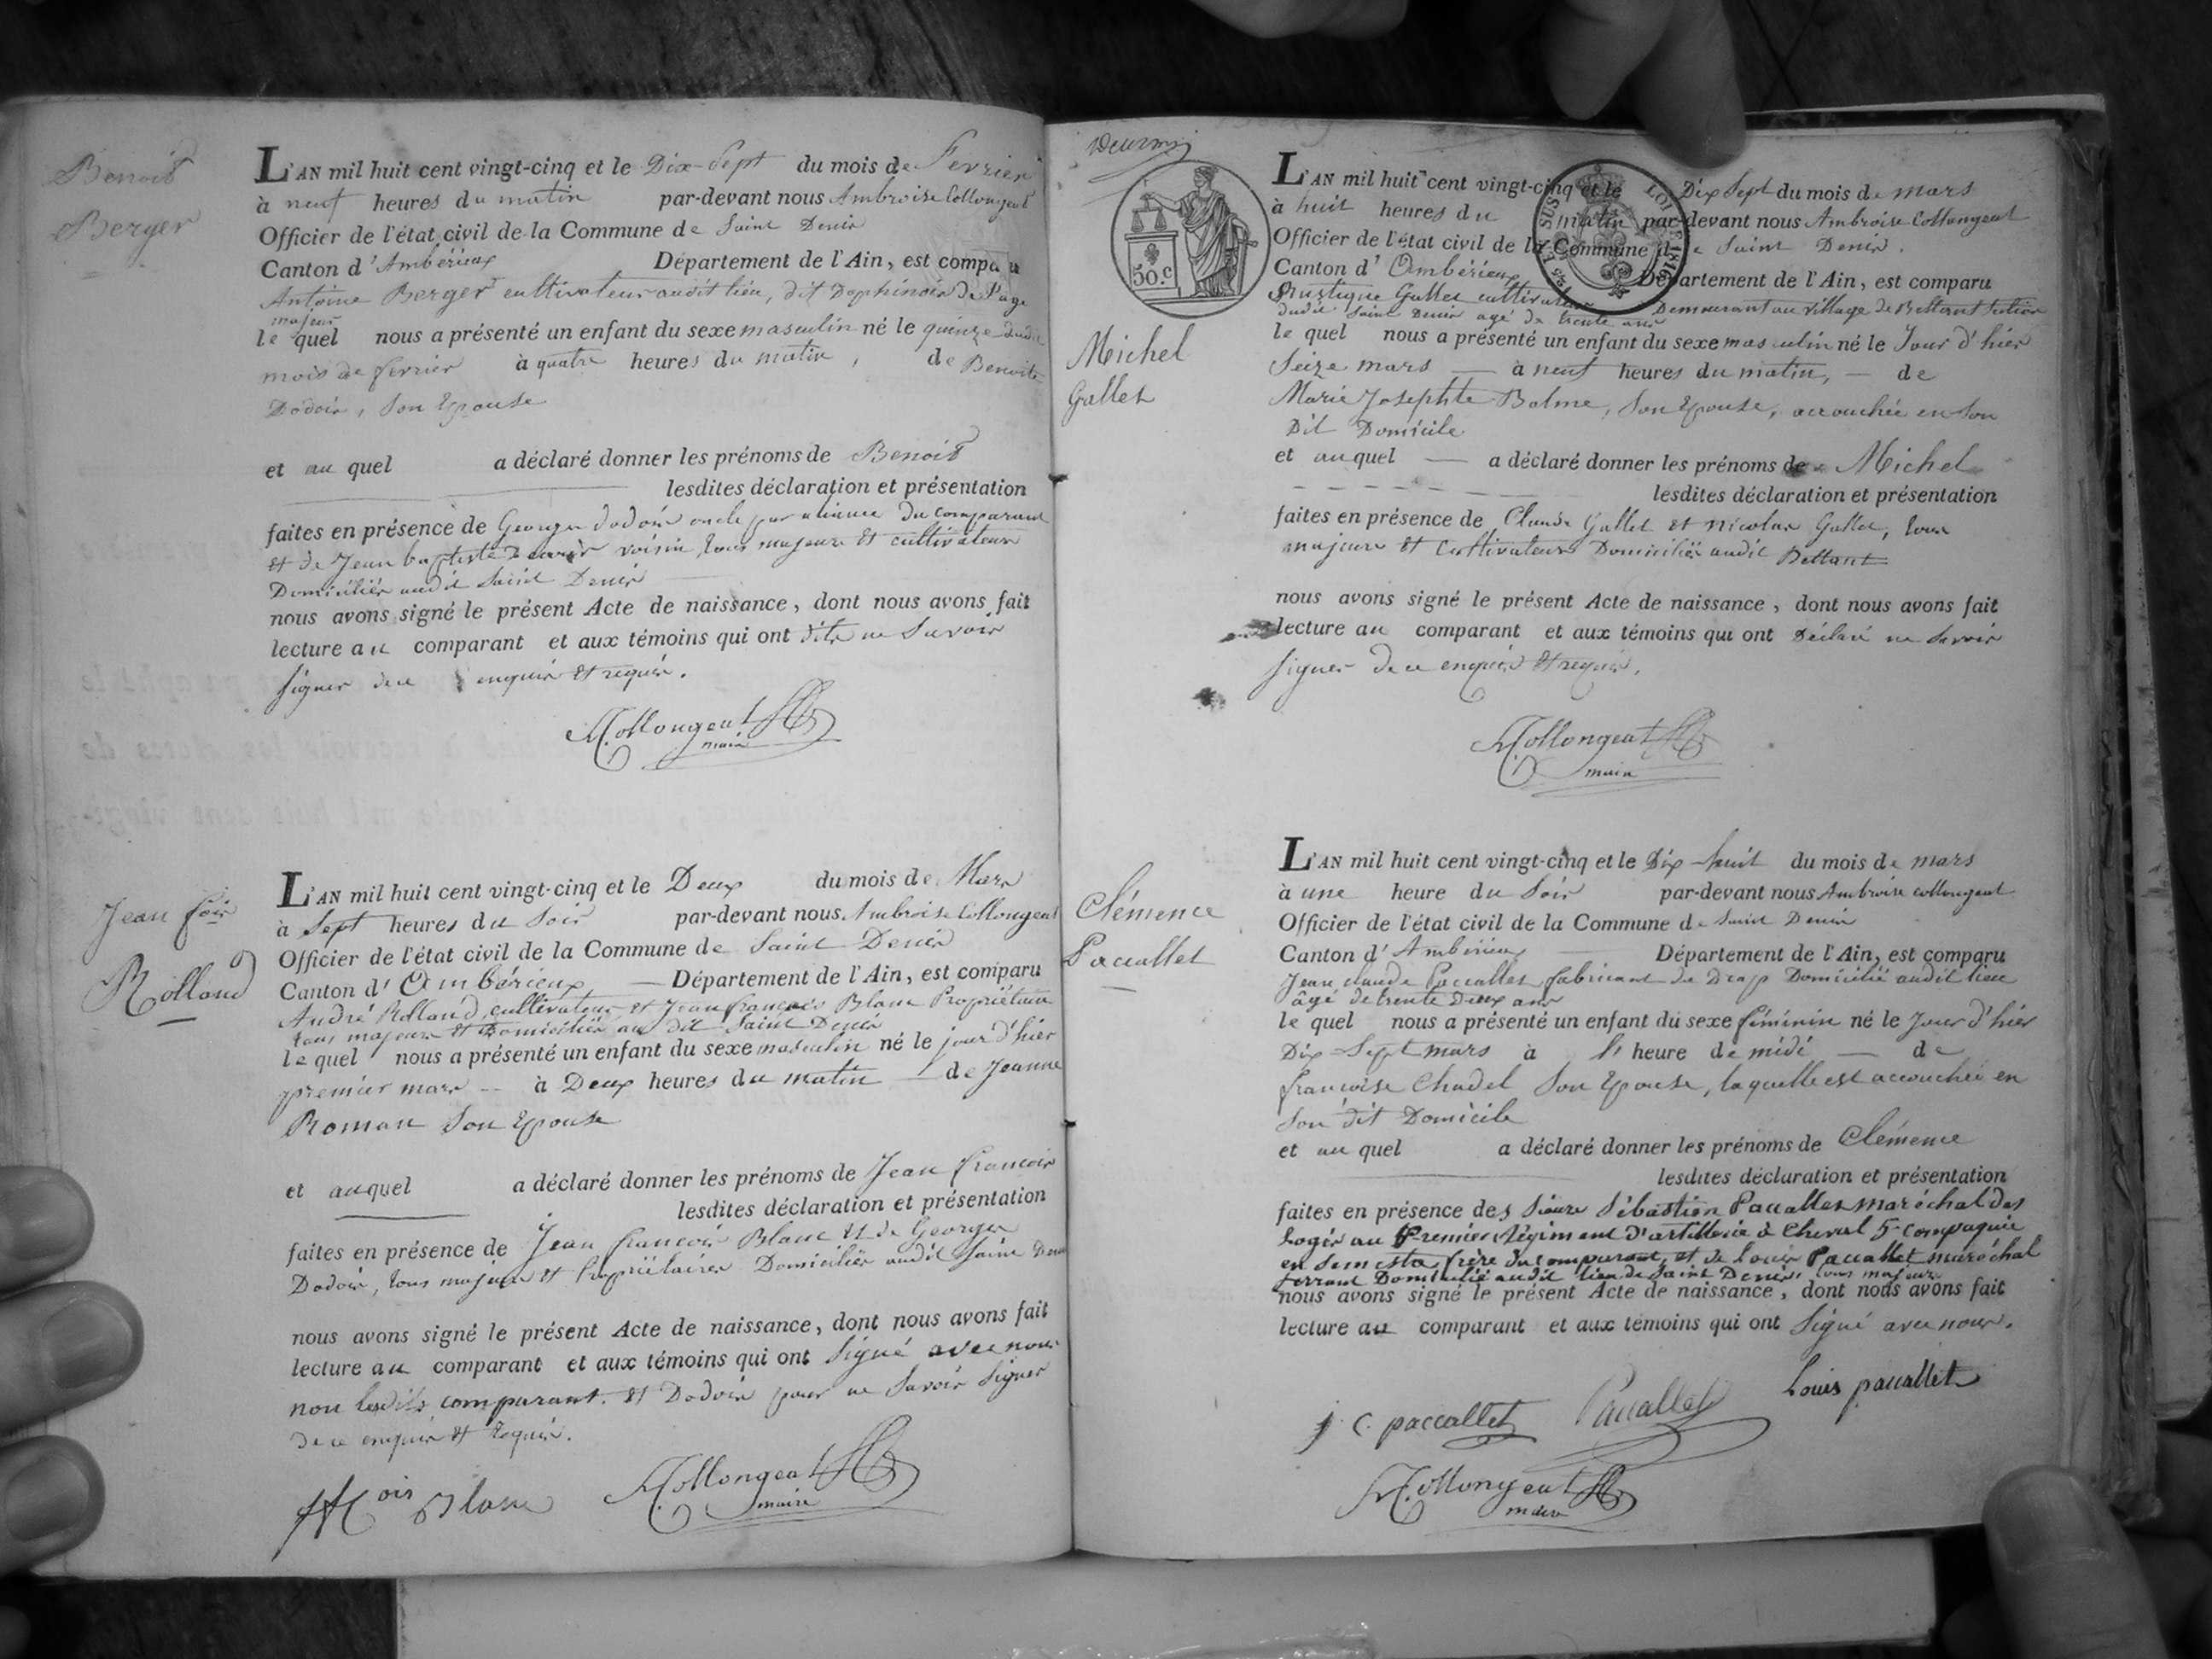 Benoit
Berger
L'AN mil huit cent vingt-cinq et le Dix-Sept du mois de Fevrier
à neuf heures du matin par-devant nous Ambroise Collongeat
Officier de l'état civil de la Commune de Saint Denis
Canton d'Ambérieux Département de l'Ain, est comparu
Antoine Berger cultivateur audit lieu, dit Dophinois De l'age
majeur
le quel nous a présenté un enfant du sexe masculin né le quinze dudit
mois de fevrier à quatre heures du matin, de Benoite
Dodois, Son Epouse
et au quel a déclaré donner les prénoms de Benoit
lesdites déclaration et présentation
faites en présence de George Dodois oncle par aliance du comparant
et de Jean baptiste voisin, tous majeurs et cultivateurs
Domiciliés audit Saint Denis
nous avons signé le présent Acte de naissance, dont nous avons fait
lecture au comparant et aux témoins qui ont dits ne Savoir
signer de ce enquis et requis.
A. Collongeat
maire
Jean fois
Rolland
L'AN mil huit cent vingt-cinq et le Deux du mois de Mars
à Sept heures du Soir par-devant nous Ambroise Collongeat
Officier de l'état civil de la Commune de Saint Denis
Canton d'Ambérieux Département de l'Ain, est comparu
André Rolland, cultivateur et Jean françois Blanc Propriétaire
tous majeurs et Domiciliés au dit Saint Denis
le quel nous a présenté un enfant du sexe masculin né le jour d'hier
premier mars à Deux heures du matin de Jeanne
Roman Son Epouse
et auquel a déclaré donner les prénoms de Jean francois
lesdites déclaration et présentation
faites en présence de Jean francois Blanc et de George
Dodois, tous majeurs et Propriétaires Domiciliés audit Saint Denis
nous avons signé le présent Acte de naissance, dont nous avons fait
lecture au comparant et aux témoins qui ont Signé avec nous
non lesdits comparant. et Dodois pour ne Savoir Signer
de ce enquis et Requis.
ois Blanc
A. Collongeat
maire
50.c
LOI 1816
Michel
Gallet
L'AN mil huit cent vingt-cinq et le Dix Sept du mois de mars
à huit heures du matin par-devant nous Ambroise Collongeat
Officier de l'état civil de la Commune de Saint Denis.
Canton d'Ambérieux Département de l'Ain, est comparu
Rustique Gallet cultivateur Demeurant au village de Bettant Section
dudit Saint Denis agé de trente ans
le quel nous a présenté un enfant du sexe masculin né le Jour d'hier
Seize mars à neuf heures du matin, de
Marie Josephte Balme, Son Epouse, accouchée en Son
Dit Domicile
et auquel a déclaré donner les prénoms de Michel
lesdites déclaration et présentation
faites en présence de Claude Gallet et nicolas Gallet, tous
majeurs et Cultivateurs Domiciliés audit Bettant
nous avons signé le présent Acte de naissance, dont nous avons fait
lecture au comparant et aux témoins qui ont Déclaré ne Savoir
signer de ce enquis et requis.
A. Collongeat
maire
Clémence
Paccallet
L'AN mil huit cent vingt-cinq et le Dix-huit du mois de mars
à une heure du Soir par-devant nous Ambroise collongeat
Officier de l'état civil de la Commune de Saint Denis
Canton d'Ambérieux Département de l'Ain, est comparu
Jean claude Paccallet fabricant de Drap Domicilié audit lieu
âgé de trente Deux ans
le quel nous a présenté un enfant du sexe féminin né le Jour d'hier
Dix-Sept mars à l'heure de midi de
françoise Chudel Son Epouse, laquelle est accouchée en
Son dit Domicile
et au quel a déclaré donner les prénoms de Clémence
lesdites déclaration et présentation
faites en présence des Sieurs Sébastien Paccallet maréchal des
Logis au Premier Régiment d'artillerie à Cheval 5e compagnie
en Semestre, frère du comparant, et de Louis Paccallet maréchal
ferrant Domicilié audit lieu de Saint Denis, tous majeurs
nous avons signé le présent Acte de naissance, dont nous avons fait
lecture au comparant et aux témoins qui ont Signé avec nous.
j. c. paccallet Paccallet Louis paccallet
A. Collongeat
maire